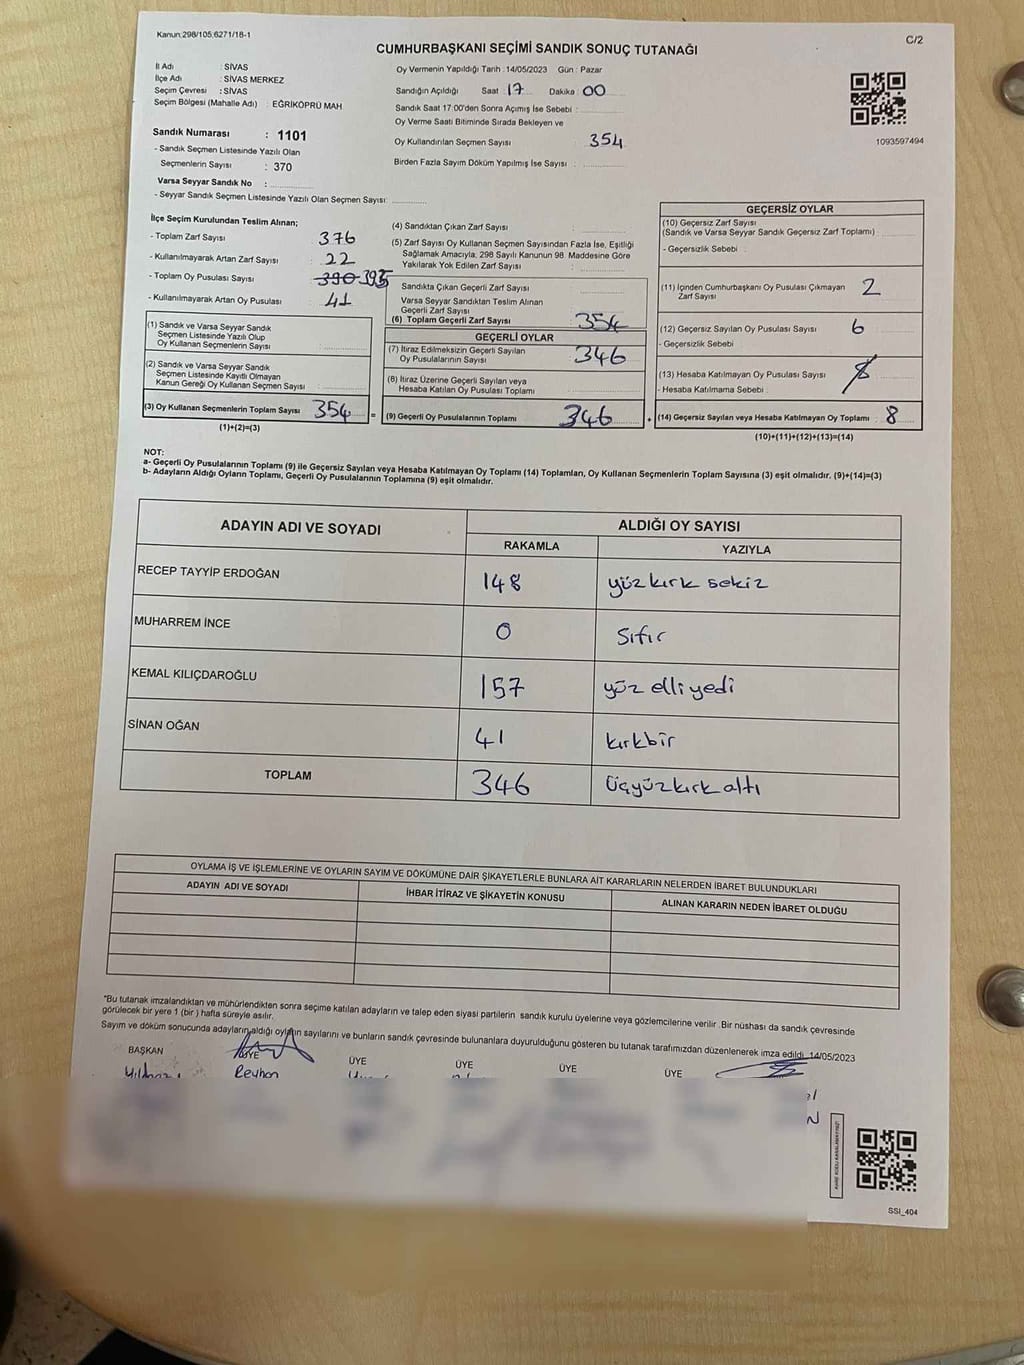 Kanun:298/105,6271/18-1
C/2
CUMHURBAŞKANI SEÇİMİ SANDIK SONUÇ TUTANAĞI
İl Adı : SİVAS
İlçe Adı : SİVAS MERKEZ
Seçim Çevresi : SİVAS
Seçim Bölgesi (Mahalle Adı) : EĞRİKÖPRÜ MAH
Sandık Numarası : 1101
- Sandık Seçmen Listesinde Yazılı Olan
Seçmenlerin Sayısı : 370
Varsa Seyyar Sandık No :
- Seyyar Sandık Seçmen Listesinde Yazılı Olan Seçmen Sayısı:
Oy Vermenin Yapıldığı Tarih : 14/05/2023 Gün : Pazar
Sandığın Açıldığı Saat : 17 Dakika : 00
Sandık Saat 17:00'den Sonra Açımış İse Sebebi :
Oy Verme Saati Bitiminde Sırada Bekleyen ve
Oy Kullandırılan Seçmen Sayısı : 354
Birden Fazla Sayım Döküm Yapılmış İse Sayısı :
1093597494
İlçe Seçim Kurulundan Teslim Alınan;
- Toplam Zarf Sayısı : 376
- Kullanılmayarak Artan Zarf Sayısı : 22
- Toplam Oy Pusulası Sayısı : 390 395
- Kullanılmayarak Artan Oy Pusulası : 41
(1) Sandık ve Varsa Seyyar Sandık
Seçmen Listesinde Yazılı Olup
Oy Kullanan Seçmenlerin Sayısı :
(2) Sandık ve Varsa Seyyar Sandık
Seçmen Listesinde Kayıtlı Olmayan
Kanun Gereği Oy Kullanan Seçmen Sayısı :
(3) Oy Kullanan Seçmenlerin Toplam Sayısı : 354 =
(1)+(2)=(3)
(4) Sandıktan Çıkan Zarf Sayısı :
(5) Zarf Sayısı Oy Kullanan Seçmen Sayısından Fazla İse, Eşitliği
Sağlamak Amacıyla, 298 Sayılı Kanunun 98. Maddesine Göre
Yakılarak Yok Edilen Zarf Sayısı :
Sandıkta Çıkan Geçerli Zarf Sayısı :
Varsa Seyyar Sandıktan Teslim Alınan
Geçerli Zarf Sayısı :
(6) Toplam Geçerli Zarf Sayısı : 354
GEÇERLİ OYLAR
(7) İtiraz Edilmeksizin Geçerli Sayılan
Oy Pusulalarının Sayısı : 346
(8) İtiraz Üzerine Geçerli Sayılan veya
Hesaba Katılan Oy Pusulası Toplamı :
(9) Geçerli Oy Pusulalarının Toplamı : 346 +
GEÇERSİZ OYLAR
(10) Geçersiz Zarf Sayısı
(Sandık ve Varsa Seyyar Sandık Geçersiz Zarf Toplamı) :
- Geçersizlik Sebebi :
(11) İçinden Cumhurbaşkanı Oy Pusulası Çıkmayan
Zarf Sayısı : 2
(12) Geçersiz Sayılan Oy Pusulası Sayısı : 6
- Geçersizlik Sebebi :
(13) Hesaba Katılmayan Oy Pusulası Sayısı : 8
- Hesaba Katılmama Sebebi :
(14) Geçersiz Sayılan veya Hesaba Katılmayan Oy Toplamı : 8
(10)+(11)+(12)+(13)=(14)
NOT:
a- Geçerli Oy Pusulalarının Toplamı (9) ile Geçersiz Sayılan veya Hesaba Katılmayan Oy Toplamı (14) Toplamları, Oy Kullanan Seçmenlerin Toplam Sayısına (3) eşit olmalıdır. (9)+(14)=(3)
b- Adayların Aldığı Oyların Toplamı, Geçerli Oy Pusulalarının Toplamına (9) eşit olmalıdır.
ADAYIN ADI VE SOYADI
ALDIĞI OY SAYISI
RAKAMLA YAZIYLA
RECEP TAYYİP ERDOĞAN 148 yüz kırk sekiz
MUHARREM İNCE 0 sıfır
KEMAL KILIÇDAROĞLU 157 yüz elli yedi
SİNAN OĞAN 41 kırkbir
TOPLAM 346 üçyüz kırk altı
OYLAMA İŞ VE İŞLEMLERİNE VE OYLARIN SAYIM VE DÖKÜMÜNE DAİR ŞİKAYETLERLE BUNLARA AİT KARARLARIN NELERDEN İBARET BULUNDUKLARI
ADAYIN ADI VE SOYADI İHBAR İTİRAZ VE ŞİKAYETİN KONUSU ALINAN KARARIN NEDEN İBARET OLDUĞU
*Bu tutanak imzalandıktan ve mühürlendikten sonra seçime katılan adayların ve talep eden siyasi partilerin sandık kurulu üyelerine veya gözlemcilerine verilir. Bir nüshası da sandık çevresinde
görülecek bir yere 1 (bir) hafta süreyle asılır.
Sayım ve döküm sonucunda adayların aldığı oyların sayılarını ve bunların sandık çevresinde bulunanlara duyurulduğunu gösteren bu tutanak tarafımızdan düzenlenerek imza edildi. 14/05/2023
BAŞKAN ÜYE ÜYE ÜYE ÜYE ÜYE
Reyhan
SSI_404